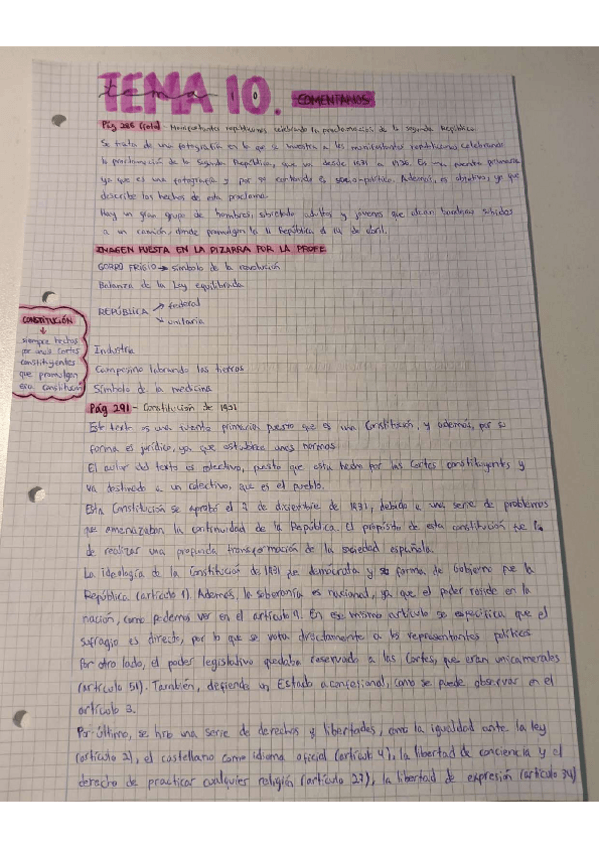 TEMA 10. COMENTARIOS
tema 10
Pág 286 (foto) - Manifestantes republicanos celebrando la proclamación de la Segunda República
Se trata de una fotografía en la que se muestra a los manifestantes republicanos celebrando
la proclamación de la Segunda República, que va desde 1931 a 1936. Es una fuente primaria
ya que es una fotografía y por su contenido es socio-político. Además, es objetivo, ya que
describe los hechos de esta proclama.
Hay un gran grupo de hombres, sobretodo adultos y jóvenes que alzan banderas subidos
a un camión, donde promulgan la II República el 14 de abril.
IMAGEN PUESTA EN LA PIZARRA POR LA PROFE
GORRO FRIGIO → símbolo de la revolución
Balanza de la Ley equilibrada
REPÚBLICA → federal
↘ unitaria
Industria
Campesino labrando las tierras
Símbolo de la medicina
CONSTITUCIÓN
↓
siempre hechas
por unas Cortes
constituyentes
que promulgan
esa constitución
Pág 291 - Constitución de 1931
Este texto es una fuente primaria puesto que es una Constitución, y además, por su
forma es jurídico, ya que establece unas normas.
El autor del texto es colectivo, puesto que esta hecho por las Cortes constituyentes y
va destinado a un colectivo, que es el pueblo.
Esta Constitución se aprobó el 9 de diciembre de 1931, debido a una serie de problemas
que amenazaban la continuidad de la República. El propósito de esta constitución fue la
de realizar una profunda transformación de la sociedad española.
La ideología de la Constitución de 1931 fue demócrata y su forma de Gobierno fue la
República (artículo 1). Además, la soberanía es nacional, ya que el poder reside en la
nación, como podemos ver en el artículo. En ese mismo artículo se especifica que el
sufragio es directo, por lo que se vota directamente a los representantes políticos
Por otro lado, el poder legislativo quedaba reservado a las Cortes, que eran unicamerales
(artículo 51). También, defiende un Estado aconfesional, como se puede observar en el
artículo 3.
Por último, se hizo una serie de derechos y libertades, como la igualdad ante la ley
(artículo 2), el castellano como idioma oficial (artículo 4), la libertad de conciencia y el
derecho de practicar cualquier religión (artículo 27), la libertad de expresión (artículo 34)